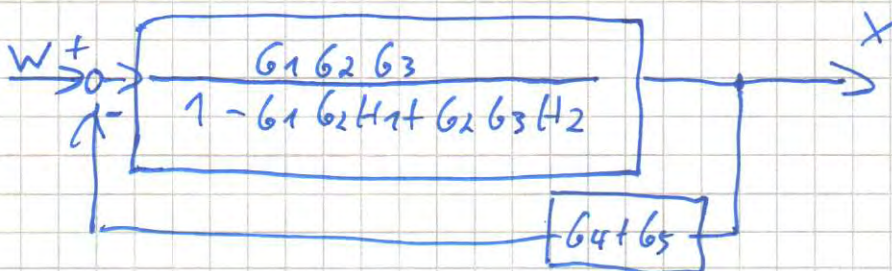 W + G1 G2 G3 X
1 - G1 G2 H1 + G2 G3 H2
-
G4 + G5